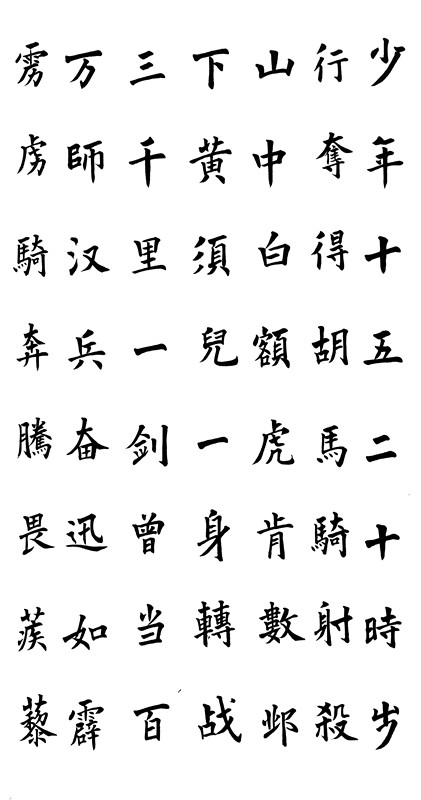 少年十五二十時步
行奪得胡馬騎射殺
山中白額虎肯數邺
下黄須兒一身轉战
三千里一剑曾当百
万師汉兵奋迅如霹
雳虏騎奔騰畏蒺藜